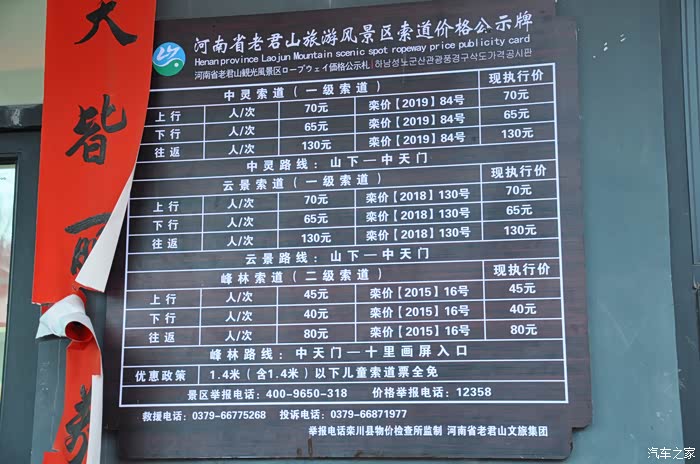 大
皆
河南省老君山旅游风景区索道价格公示牌
Henan province Laojun Mountain scenic spot ropeway price publicity card
河南省老君山観光風景区ロープウェイ価格公示札 | 하남성노군산관광풍경구삭도가격공시판
中灵索道（一级索道） 现执行价
上行 人/次 70元 栾价【2019】84号 70元
下行 人/次 65元 栾价【2019】84号 65元
往返 人/次 130元 栾价【2019】84号 130元
中灵路线：山下—中天门
云景索道（一级索道） 现执行价
上行 人/次 70元 栾价【2018】130号 70元
下行 人/次 65元 栾价【2018】130号 65元
往返 人/次 130元 栾价【2018】130号 130元
云景路线：山下—中天门
峰林索道（二级索道） 现执行价
上行 人/次 45元 栾价【2015】16号 45元
下行 人/次 40元 栾价【2015】16号 40元
往返 人/次 80元 栾价【2015】16号 80元
峰林路线：中天门—十里画屏入口
优惠政策 1.4米（含1.4米）以下儿童索道票全免
景区举报电话：400-9650-318 价格举报电话：12358
救援电话：0379-66775268 投诉电话：0379-66871977
举报电话栾川县物价检查所监制 河南省老君山文旅集团
汽车之家